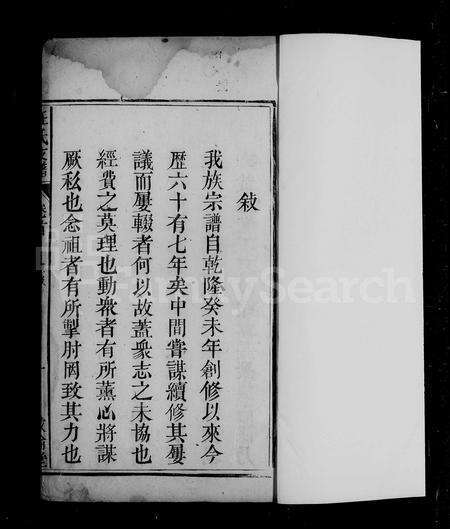 敍
我族宗譜自乾隆癸未年創修以來今
歷六十有七年矣中間嘗謀續修其屢
議而屢輟者何以故蓋衆志之未協也
經費之莫理也動衆者有所薰心將謀
厥私也念祖者有所掣肘罔致其力也
FamilySearch